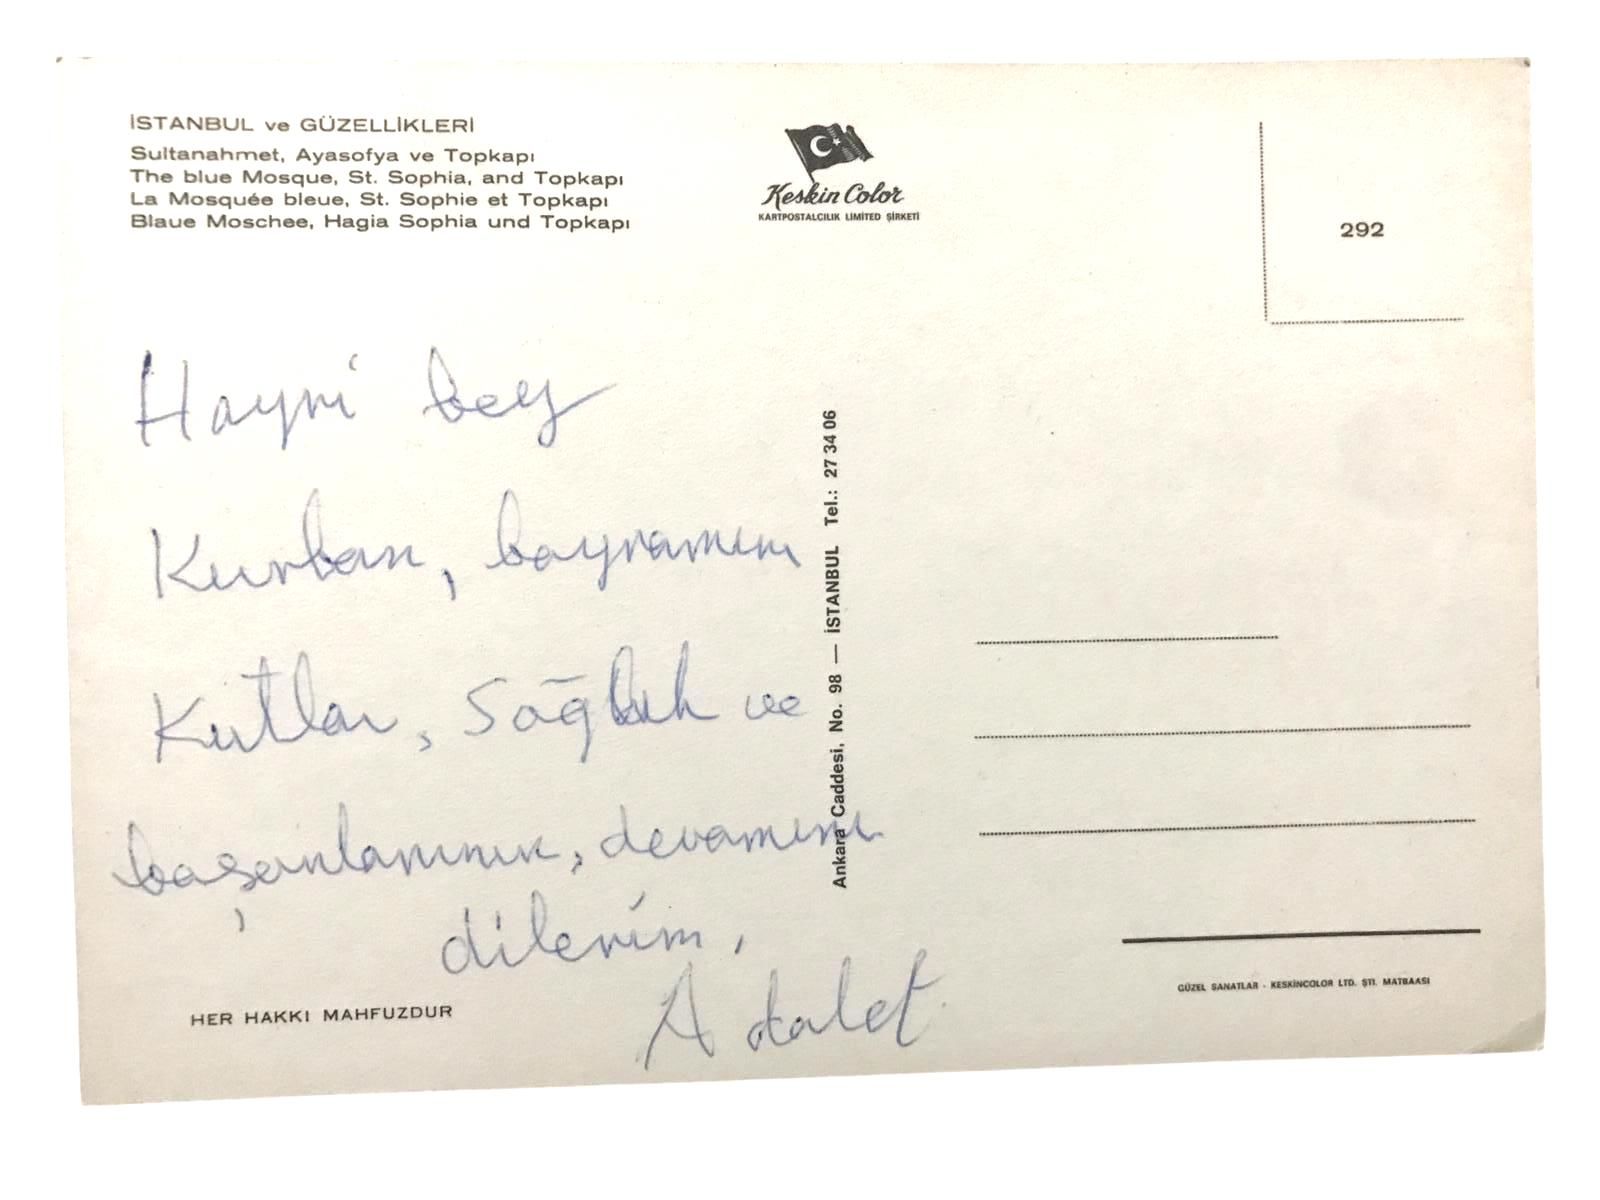 İSTANBUL ve GÜZELLİKLERİ
Sultanahmet, Ayasofya ve Topkapı
The blue Mosque, St. Sophia, and Topkapı
La Mosquée bleue, St. Sophie et Topkapı
Blaue Moschee, Hagia Sophia und Topkapı
Keskin Color
KARTPOSTALCILIK LIMITED ŞİRKETİ
292
Hayri bey
Kurban, bayramını
Kutlar, Sağlık ve
başarılarının, devamını
dilerim,
Adalet
HER HAKKI MAHFUZDUR
Ankara Caddesi, No. 98 — İSTANBUL Tel.: 27 34 06
GÜZEL SANATLAR - KESKİNCOLOR LTD. ŞTİ. MATBAASI